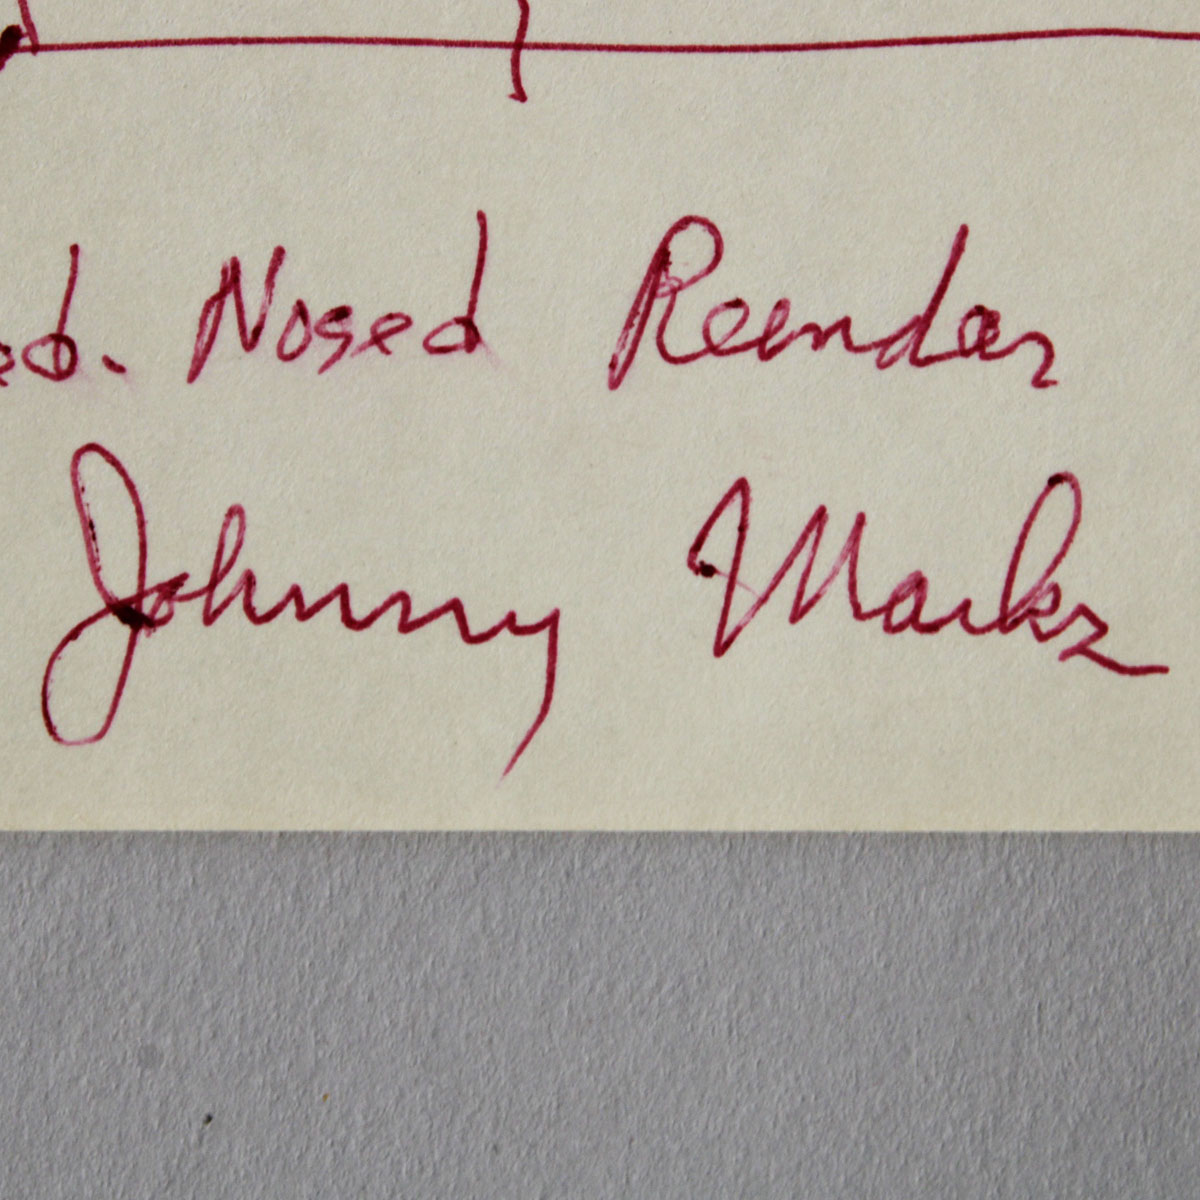 ed. Nosed Reindeer
Johnny Marks